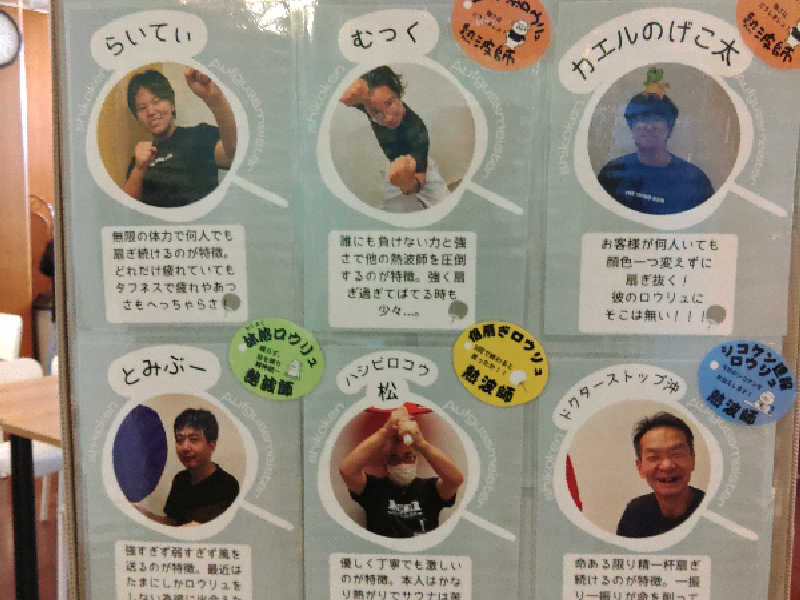 らいてぃ
shikaken aufgussmeister
無限の体力で何人でも
扇ぎ続けるのが特徴。
どれだけ疲れていても
タフネスで疲れやあつ
さもへっちゃらさ！
むつく
shikaken aufgussmeister
誰にも負けない力と強
さで他の熱波師を圧倒
するのが特徴。強く扇
ぎ過ぎてばてる時も
少々…。
ロウリュ
熱波師
カエルのげこ太
shikaken aufgussmeister
お客様が何人いても
顔色一つ変えずに
扇ぎ抜く！
彼のロウリュに
そこは無い！！！
熱波師
とみぶー
shikaken aufgussmeister
強すぎず弱すぎず風を
送るのが特徴。最近は
たまにしかロウリュを
しない為
ロウリュ
熱波師
ハシビロコウ
松
shikaken aufgussmeister
優しく丁寧でも激しい
のが特徴。本人はかな
り熱がりでサウナは
扇ぎロウリュ
熱波師
ドクターストップ沖
shikaken aufgussmeister
命ある限り精一杯扇ぎ
続けるのが特徴。一振
り一振りが命を削って
ロウリュ
熱波師